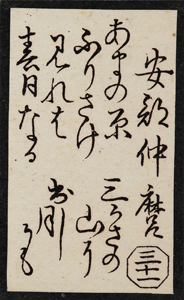 安部仲麿
三十一
あまの原
ふりさけ
見れは
春日なる
三かさの
山に
出し月
かも